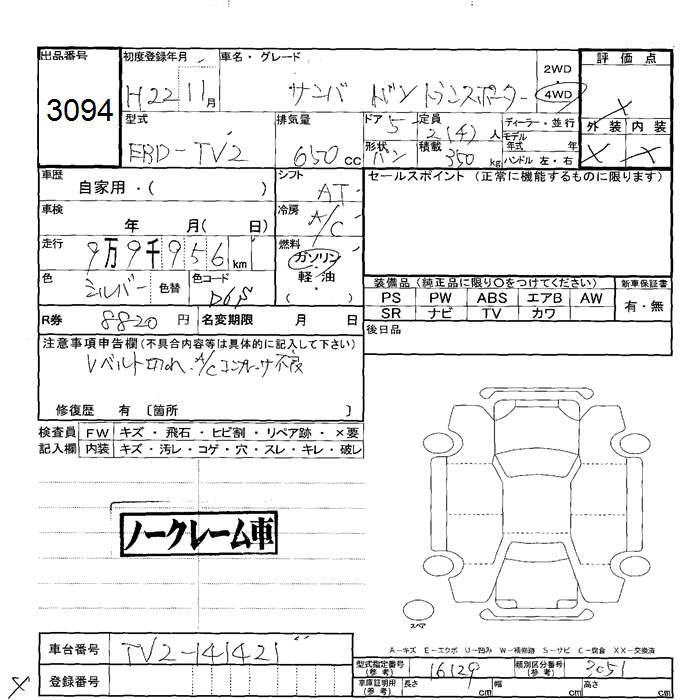 出品番号
3094
初度登録年月
H22 11月
車名・グレード
サンバー バン トランスポーター
2WD
4WD
評価点
×
外装 内装
× ×
型式
EBD-TV2
排気量
650cc
ドア 5
定員 2(4)人
形状 バン
積載 350kg
ディーラー・並行
モデル年式 年
ハンドル 左・右
車歴 自家用・( )
シフト AT
セールスポイント (正常に機能するものに限ります)
車検 年 月( 日)
冷房 A/C
走行 9万9千956km
燃料 ガソリン・軽油
( )
色 シルバー 色替
色コード D6S
装備品 (純正品に限り○をつけてください)
新車保証書
PS PW ABS エアB AW
SR ナビ TV カワ
有・無
R券 8820円
名変期限 月 日
後日品
注意事項申告欄(不具合内容等は具体的に記入して下さい)
Vベルト切れ、A/Cコンプレーサ不良
修復歴 有 〔箇所 〕
検査員記入欄
FW キズ・飛石・ヒビ割・リペア跡・×要
内装 キズ・汚レ・コゲ・穴・スレ・キレ・破レ
ノークレーム車
スペア
A-キズ E-エクボ U-凹み W-補修跡 S-サビ C-腐食 XX-交換済
車台番号 TV2-141421
登録番号
×
型式指定番号(参考) 16129
類別区分番号(参考) 3051
車庫証明用(参考)
長さ cm 幅 cm 高さ cm